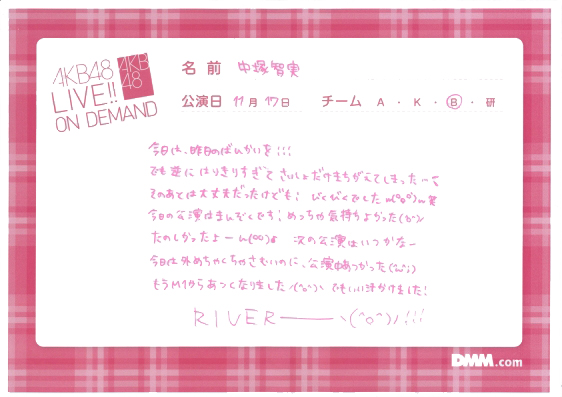 AKB48
LIVE!!
ON DEMAND
AKB
48
名前 中塚智実
公演日 11月17日 チーム A・K・B・研
今日は、昨日のばんかいを!!!
でも逆にはりきりすぎてさいしょだけまちがえてしまった…
そのあとは大丈夫だったけども! びくびくでした
今日の公演はまんぞくです! めっちゃ気持ちよかった
たのしかったよー 次の公演はいつかなー
今日は外めちゃくちゃさむいのに、公演中あつかった(^ω^;)
もうM1からあつくなりました ヽ(^o^)ヽ でもいい汗かけました!
RIVER――――ヽ(^o^)ノ!!!
DMM.com